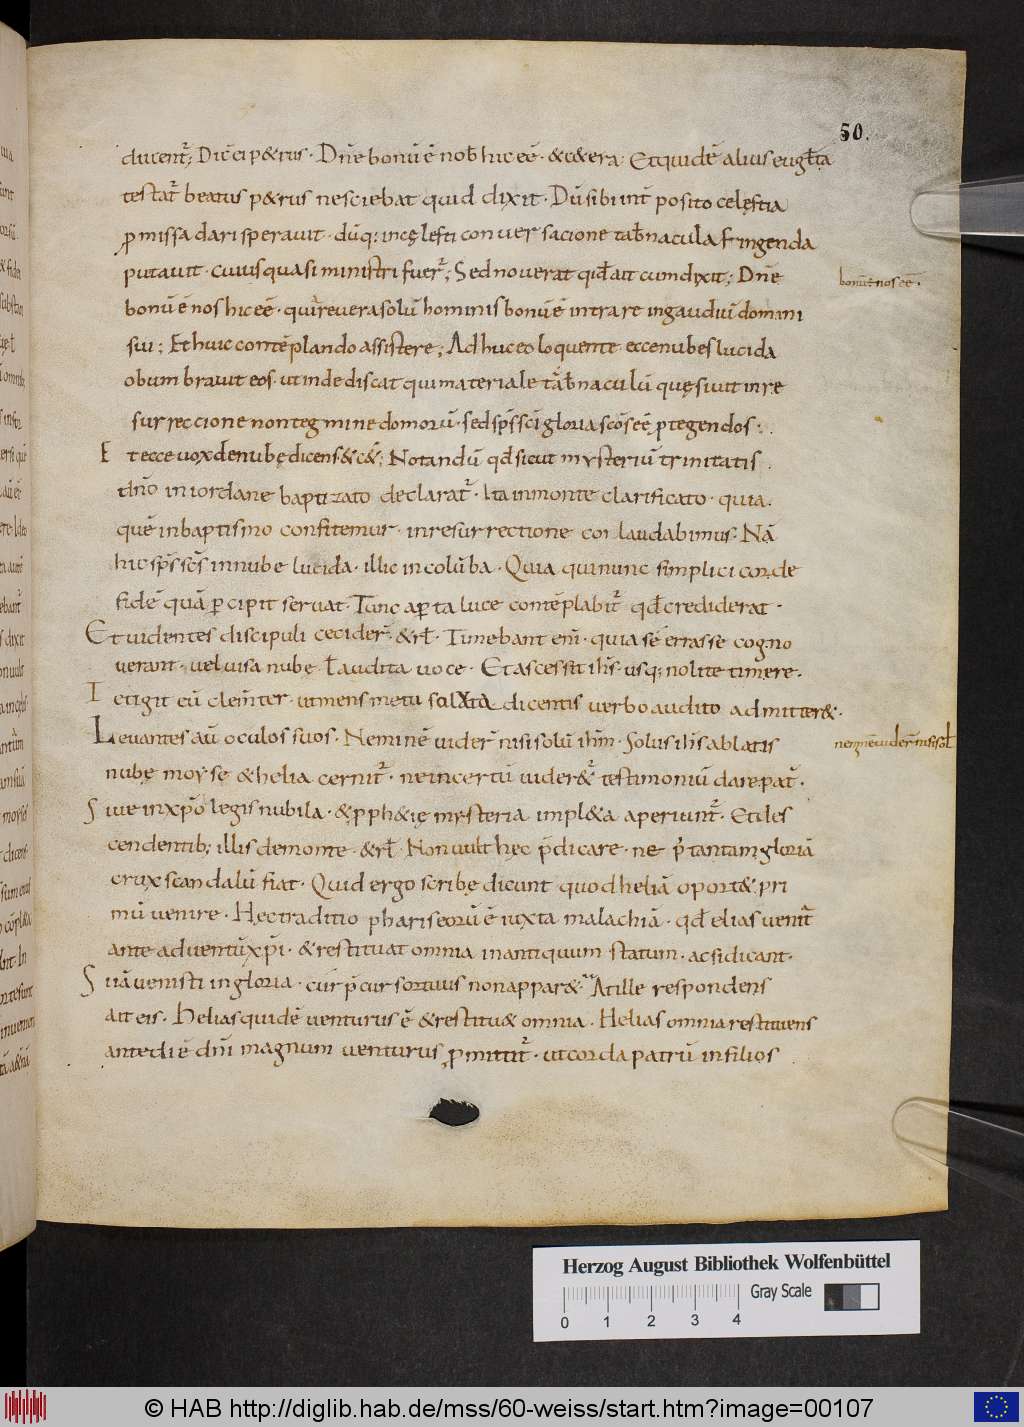 50.
ducent᷑; Dic̄ci p&rus · Dn̄e bonū ē nob̄ hic eē · &c&era · Et quidē alius euḡlista
testat᷑ beatus p&rus nesciebat quid dixit · Dū sibi int̄ posito celęstia
ꝓmissa dari sperauit · dūq; incęlesti conuersacione tab̄nacula fringenda
putauit · cuius quasi ministri fuer᷑; Sed nouerat qid ait cum dixit; Dn̄e
bonū ē nos hic eē · quir̄euera solū hominis bonū ē intrare ingaudiū domini
sui; Et huic contēplando assistere; Adhuc eo loquente ecce nubes lucida
obumbrauit eos · ut inde discat qui materiale tab̄naculū quęsiuit in re
surreccione non tegmine domorū · sed sp̄s sc̄i gloria sc̄os eē ꝓtegendos ·
Et ecce uox de nubę dicens &c&; Notandū qd̄ sicut mysteriū trinitatis
dn̄o in iordane baptizato declarat᷑ · Ita in monte clarificato · quia
quē in baptismo confitemur · in resurrectione con laudabimus · Nā
hic sp̄s sc̄s in nube lucida · illic in colūba · Quia qui nunc simplici corde
fidē quā ꝑcipit seruat · Tunc aꝑta luce contēplabit᷑ qd̄ crediderat ·
Et uidentes discipuli cecider᷑ · &rl̄ · Timebant eni᷑ · quia sē errasse cogno
uerant · uel uisa nube ł audita uoce · Et accessit ih̄s · usq; nolite timere ·
Tetigit eū clem̄ter · ut mens metu soluta dicentis uerbo audito admitter& ·
Leuantes aū oculos suos · Neminē uider᷑ nisi solū ih̄m · Solus ih̄s ablatis
nubę moyse & helia cernit᷑ · ne incertū uider&᷑ testimoniū dare pat᷑ ·
Siue in xp̄o legis nubila · & ꝓph&ię mysteria impl&a aperiunt᷑ · Et des
cendentib; illis de monte · &rl̄ · Non uult hęc p̄dicare · ne p᷑ tantam gloriā
crux scandalū fiat · Quid ergo scribę dicunt quod heliā oport& pri
mū uenire · Hęc traditio phariseorū ē iuxta malachiā · qd̄ elias uenit᷑
ante aduentū xp̄i · & restituat omnia in antiquum statum · ac si dicant ·
Si iā uenisti in gloria · cur p̄cursor tuus non appar& · At ille respondens
ait eis · Helias quidē uenturus ē & restitu& omnia · Helias omnia restituens
ante diē dn̄i magnum uenturus ꝓmittit᷑ · ut corda patrū in filios
bonū ē nos eē ·
neminē uider᷑ nisi sol̄
Herzog August Bibliothek Wolfenbüttel
Gray Scale
0 1 2 3 4
© HAB http://diglib.hab.de/mss/60-weiss/start.htm?image=00107